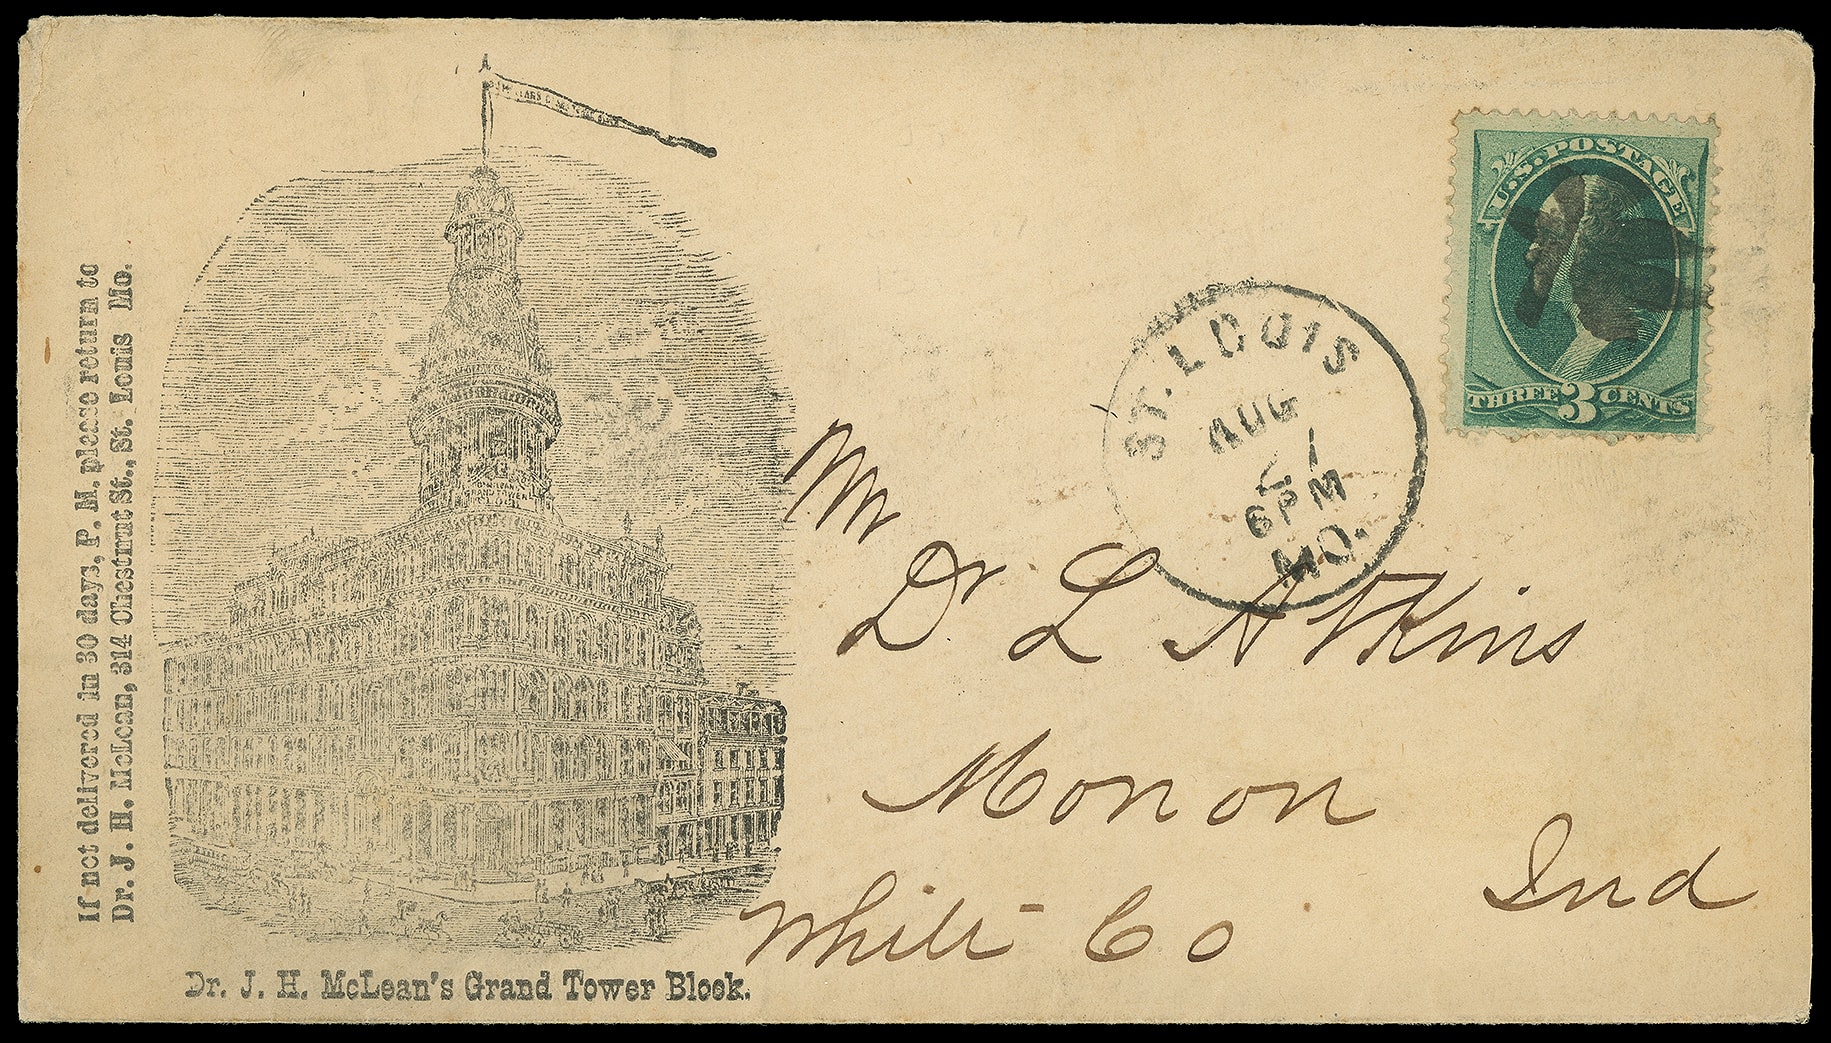 If not delivered in 30 days, P. M. please return to
Dr. J. H. McLean, 314 Chestnut St., St. Louis Mo.
GRAND TOWER
BLOCK
Dr. J. H. McLean's Grand Tower Block.
U.S. POSTAGE
THREE 3 CENTS
ST. LOUIS
AUG
6 PM
MO.
Mr
Dr L Atkins
Monon
White Co
Ind